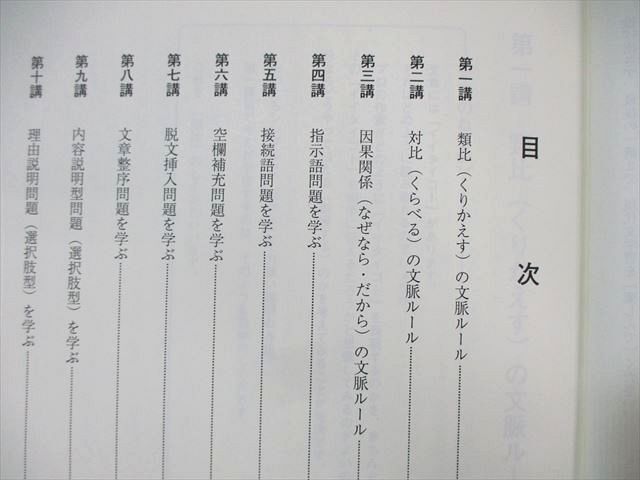 目次
第一講 類比（くりかえす）の文脈ルール
第二講 対比（くらべる）の文脈ルール
第三講 因果関係（なぜなら・だから）の文脈ルール
第四講 指示語問題を学ぶ
第五講 接続語問題を学ぶ
第六講 空欄補充問題を学ぶ
第七講 脱文挿入問題を学ぶ
第八講 文章整序問題を学ぶ
第九講 内容説明型問題（選択肢型）を学ぶ
第十講 理由説明問題（選択肢型）を学ぶ